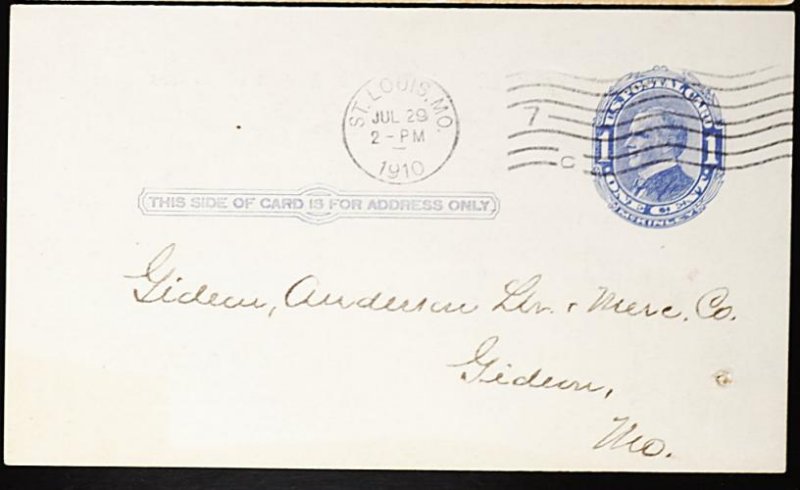 ST. LOUIS, MO.
JUL 29
2 - PM
1910
7
C
U.S. POSTAL CARD
1 1
ONE CENT
MCKINLEY
THIS SIDE OF CARD IS FOR ADDRESS ONLY
Gideon, Anderson Lbr. & Merc. Co.
Gideon,
Mo.